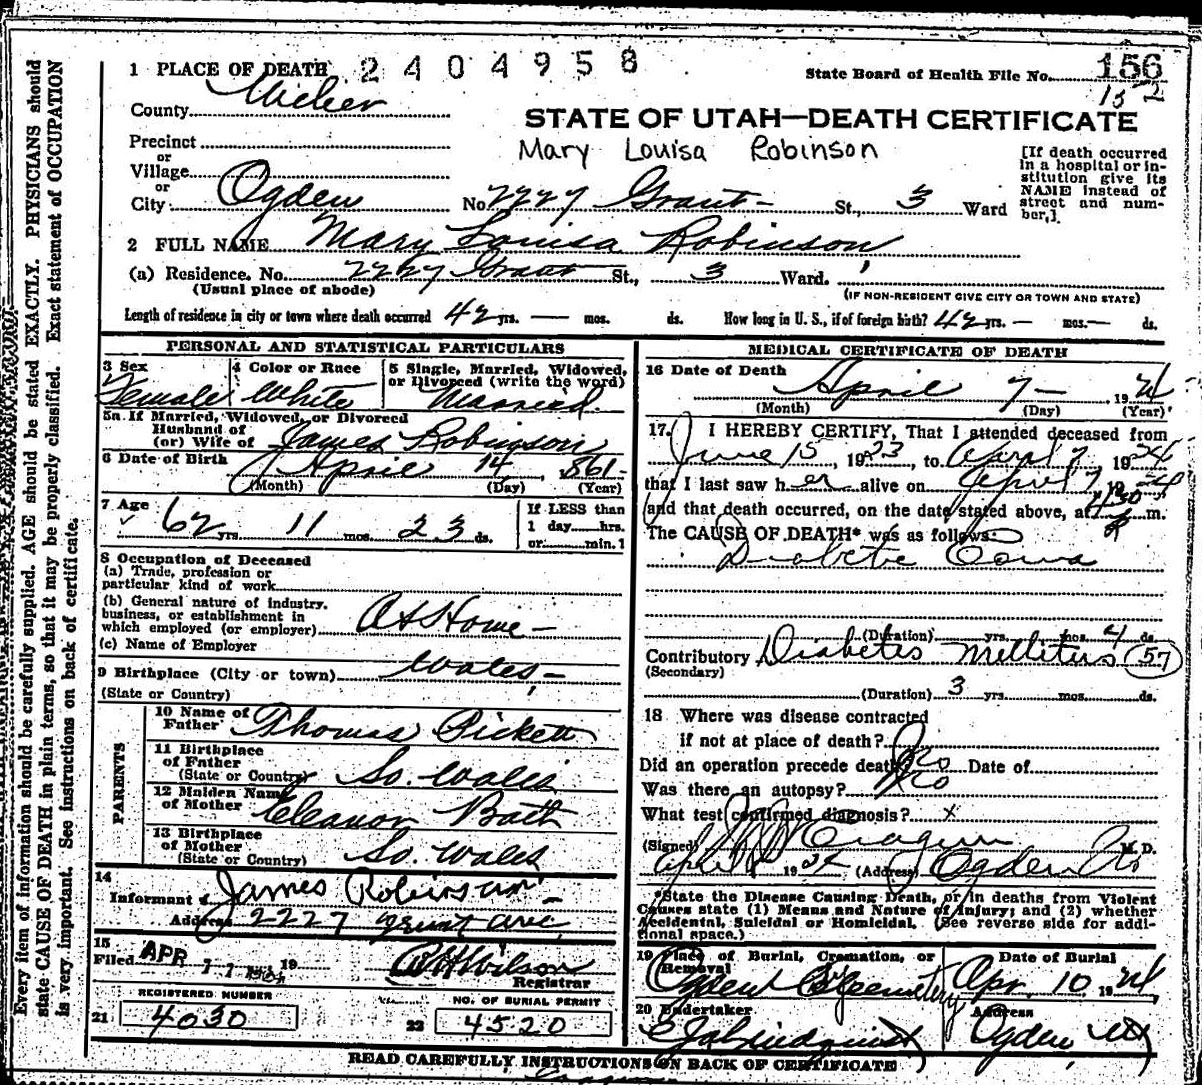 1 PLACE OF DEATH 2404958
State Board of Health File No. 156
152
County Weber
STATE OF UTAH—DEATH CERTIFICATE
Mary Louisa Robinson
Precinct
or
Village
or
City Ogden No. 2227 Grant - St., 3 Ward
[If death occurred in a hospital or institution give its NAME instead of street and number.]
2 FULL NAME Mary Louisa Robinson
(a) Residence. No. 2227 Grant St., 3 Ward.
(Usual place of abode)
(IF NON-RESIDENT GIVE CITY OR TOWN AND STATE)
Length of residence in city or town where death occurred 42 yrs. — mos. ds. How long in U. S., if of foreign birth? 42 yrs. — mos. — ds.
PERSONAL AND STATISTICAL PARTICULARS
3 Sex
Female
4 Color or Race
White
5 Single, Married, Widowed, or Divorced (write the word)
Married.
5a If Married, Widowed, or Divorced
Husband of
(or) Wife of James Robinson
6 Date of Birth April 14, 1861-
(Month) (Day) (Year)
7 Age
62 yrs. 11 mos. 23 ds.
If LESS than
1 day hrs.
or min.
8 Occupation of Deceased
(a) Trade, profession or
particular kind of work
(b) General nature of industry.
business, or establishment in
which employed (or employer) At Home -
(c) Name of Employer
9 Birthplace (City or town) Wales, -
(State or Country)
PARENTS
10 Name of
Father Thomas Pickett
11 Birthplace
of Father
(State or Country) So. Wales
12 Maiden Name
of Mother Eleanor Bath
13 Birthplace
of Mother
(State or Country) So. Wales
14
Informant James Robinson
Address 2227 Grant ave,
15
Filed APR 7 19
Wilson
Registrar
REGISTERED NUMBER
21 4030
NO. OF BURIAL PERMIT
22 4520
MEDICAL CERTIFICATE OF DEATH
16 Date of Death April 7 - 1924
(Month) (Day) (Year)
17. I HEREBY CERTIFY, That I attended deceased from
June 15, 1923, to April 7 1924
that I last saw her alive on April 7 1924
and that death occurred, on the date stated above, at 4:30 m.
The CAUSE OF DEATH* was as follows:
Diabetic Coma
(Duration) yrs. mos. 4 ds.
Contributory Diabetes Melliters 57
(Secondary)
(Duration) 3 yrs. mos. ds.
18 Where was disease contracted
if not at place of death?
Did an operation precede death? No Date of
Was there an autopsy? No
What test confirmed diagnosis? x
(Signed) Cragun M. D.
April 1924 (Address) Ogden
*State the Disease Causing Death, or in deaths from Violent
Causes state (1) Means and Nature of Injury; and (2) whether
Accidental, Suicidal or Homicidal. (See reverse side for addi-
tional space.)
19 Place of Burial, Cremation, or
Removal
Ogden City Cemetery
Date of Burial
Apr. 10 1924
20 Undertaker
Lindquist
Address
Ogden, Ut
READ CAREFULLY INSTRUCTIONS ON BACK OF CERTIFICATE
Every item of information should be carefully supplied. AGE should be stated EXACTLY. PHYSICIANS should
state CAUSE OF DEATH in plain terms, so that it may be properly classified. Exact statement of OCCUPATION
is very important. See instructions on back of certificate.